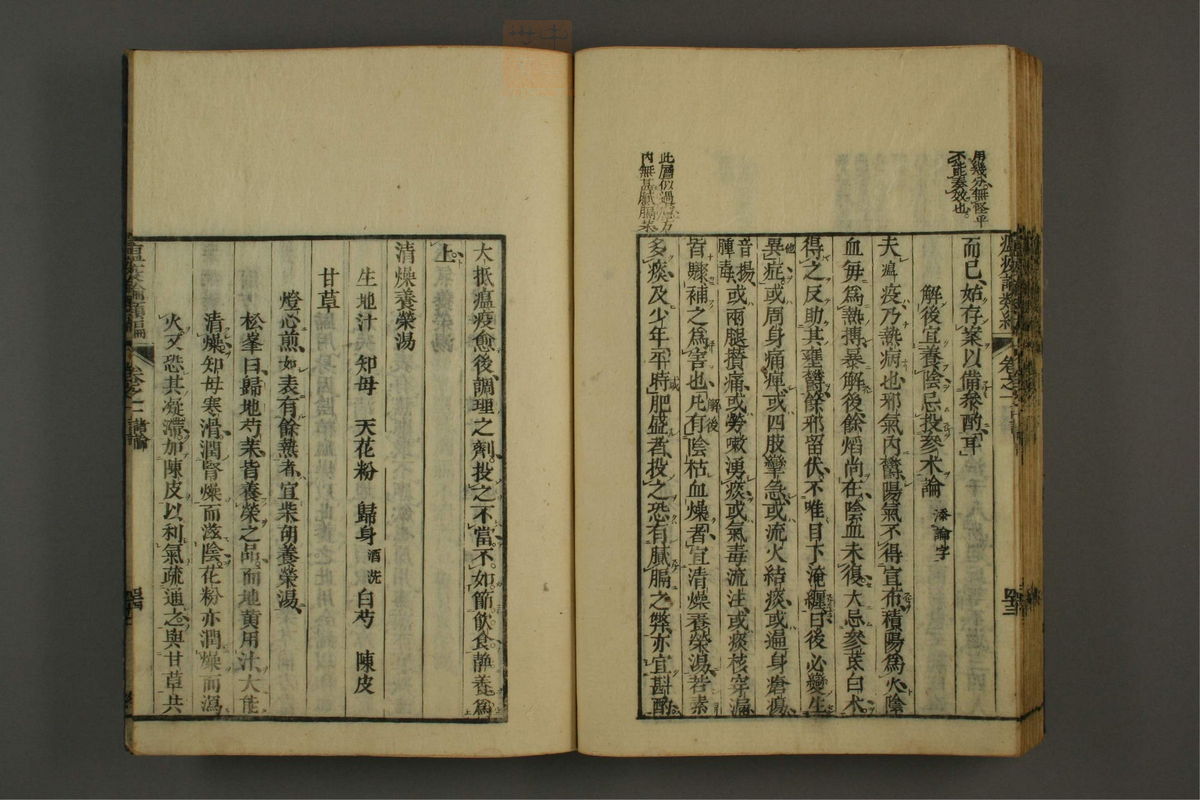 用幾分無怪乎
不能奏效也
而已始存案以備參酌耳
解後宜養陰忌投參术論 添論字
夫瘟疫乃熱病也邪氣內鬱陽氣不得宣布積陽為火陰
血每為熱搏暴解後餘焰尚在陰血未復大忌參芪白术
得之反助其壅鬱餘邪留伏不唯目下淹纏日後必變生
異症或周身痛痺或四肢攣急或流火結痰或遍身瘡瘍
或兩腿攢痛或勞嗽湧痰或氣毒流注或痰核穿漏
皆驟補之為害也凡有陰枯血燥者宜清燥養榮湯若素
多痰及少年平時肥盛者投之恐有膩膈之弊亦宜斟酌
此層似過慮方
內無甚膩膈藥
大抵瘟疫愈後調理之劑投之不當不如節飲食靜養為
上
清燥養榮湯
生地汁 知母 天花粉 歸身酒洗 白芍 陳皮
甘草
燈心煎如表有餘熱者宜柴胡養榮湯
松峯曰歸地芍藥皆養榮之品而地黃用汁大能
清燥知母寒滑潤腎燥而滋陰花粉亦潤燥而瀉
火又恐其凝滯加陳皮以利氣疏通之與甘草共
溫疫論類編 卷之二 諸論